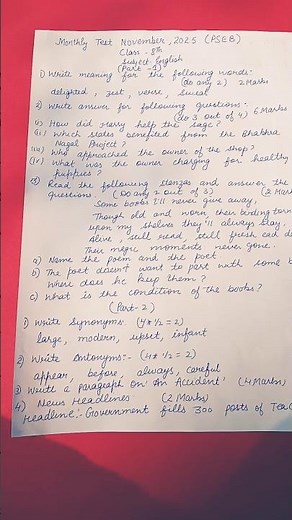 Monthly Test November, 2025 (PSEB)
Class - 8th
Subject English
(Part - 1)
1) Write meaning for the following words:
(do any 2) 2 Marks
delighted, zest, verse,
2) Write answer for following questions:-
(do 3 out of 4) 6 Marks
(i) How did Merry help the Sage?
(ii) Which states benefited from the Bhakra
Nagal Project?
(iii) Who approached the owner of the shop?
(iv) What was the owner charging for healthy
puppies?
3) Read the following stanzas and answer the
questions. (Do any 2 out of 3) (2 Mar
Some books I'll never give away,
Though old and worn, their binding torn
upon my shelves they'll always stay,
alive still read still fresh each d
Their magic moments never gone.
a) Name the poem and the poet
b) The poet doesn't want to part with some b
Where does he keep them?
c) What is the condition of the books?
(Part-2)
1) Write Synonyms. (4*½=2)
large, modern, upset, infant
2) Write Antonyms:- (4*½=2)
appear, before, always, careful
3) Write a Paragraph on 'An Accident' (4 Marks)
4) News Headlines (2 Marks)
Headline:- Government fills 300 posts of Teac